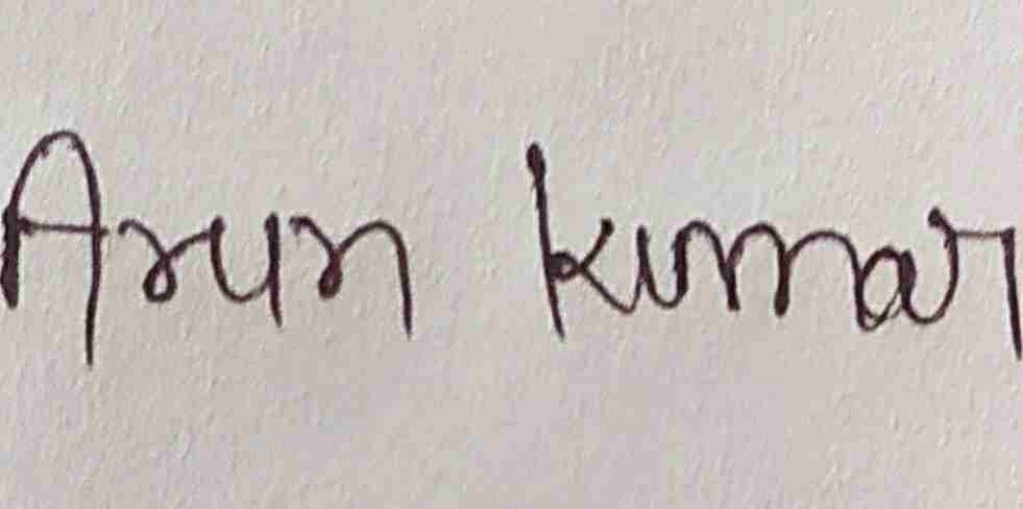 Arun kumar